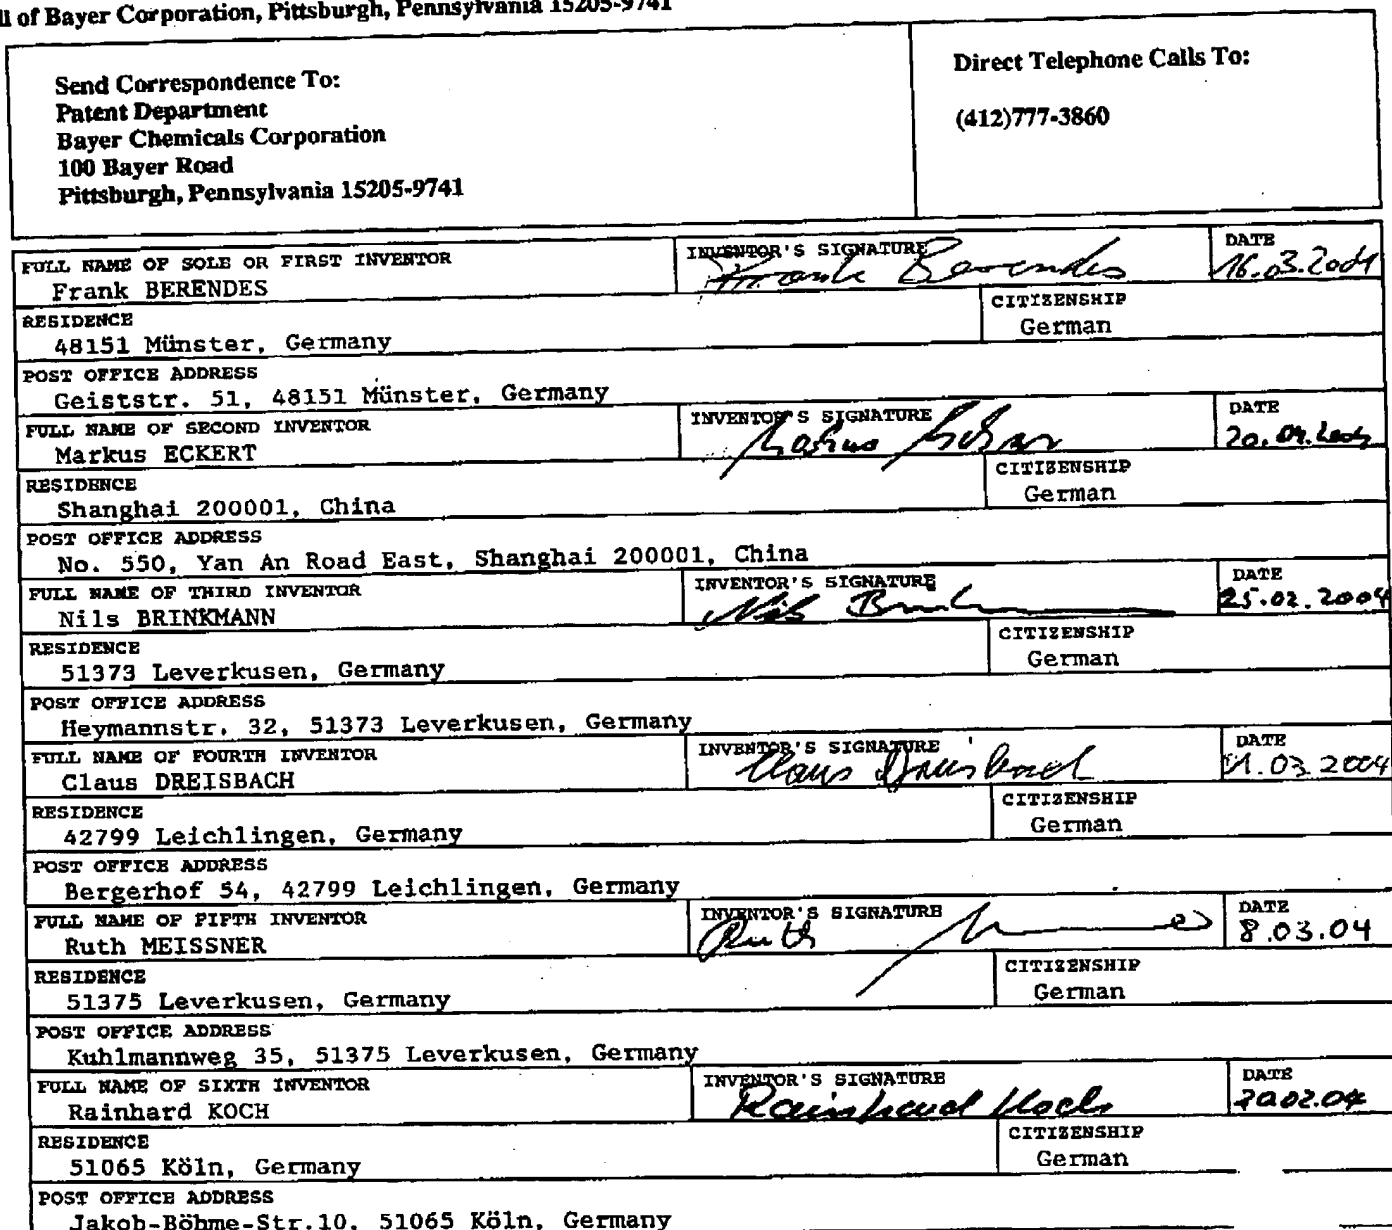 ll of Bayer Corporation, Pittsburgh, Pennsylvania 15205-9741
Send Correspondence To:
Patent Department
Bayer Chemicals Corporation
100 Bayer Road
Pittsburgh, Pennsylvania 15205-9741
Direct Telephone Calls To:
(412)777-3860
FULL NAME OF SOLE OR FIRST INVENTOR
Frank BERENDES
INVENTOR'S SIGNATURE
Frank Berendes
DATE
16.03.2004
RESIDENCE
48151 Münster, Germany
CITIZENSHIP
German
POST OFFICE ADDRESS
Geiststr. 51, 48151 Münster, Germany
FULL NAME OF SECOND INVENTOR
Markus ECKERT
INVENTOR'S SIGNATURE
DATE
RESIDENCE
Shanghai 200001, China
CITIZENSHIP
German
POST OFFICE ADDRESS
No. 550, Yan An Road East, Shanghai 200001, China
FULL NAME OF THIRD INVENTOR
Nils BRINKMANN
INVENTOR'S SIGNATURE
Nils
DATE
25.02.2004
RESIDENCE
51373 Leverkusen, Germany
CITIZENSHIP
German
POST OFFICE ADDRESS
Heymannstr. 32, 51373 Leverkusen, Germany
FULL NAME OF FOURTH INVENTOR
Claus DREISBACH
INVENTOR'S SIGNATURE
Claus Dreisbach
DATE
01.03.2004
RESIDENCE
42799 Leichlingen, Germany
CITIZENSHIP
German
POST OFFICE ADDRESS
Bergerhof 54, 42799 Leichlingen, Germany
FULL NAME OF FIFTH INVENTOR
Ruth MEISSNER
INVENTOR'S SIGNATURE
Ruth
DATE
8.03.04
RESIDENCE
51375 Leverkusen, Germany
CITIZENSHIP
German
POST OFFICE ADDRESS
Kuhlmannweg 35, 51375 Leverkusen, Germany
FULL NAME OF SIXTH INVENTOR
Rainhard KOCH
INVENTOR'S SIGNATURE
Rainhard Koch
DATE
RESIDENCE
51065 Köln, Germany
CITIZENSHIP
German
POST OFFICE ADDRESS
Jakob-Böhme-Str.10, 51065 Köln, Germany